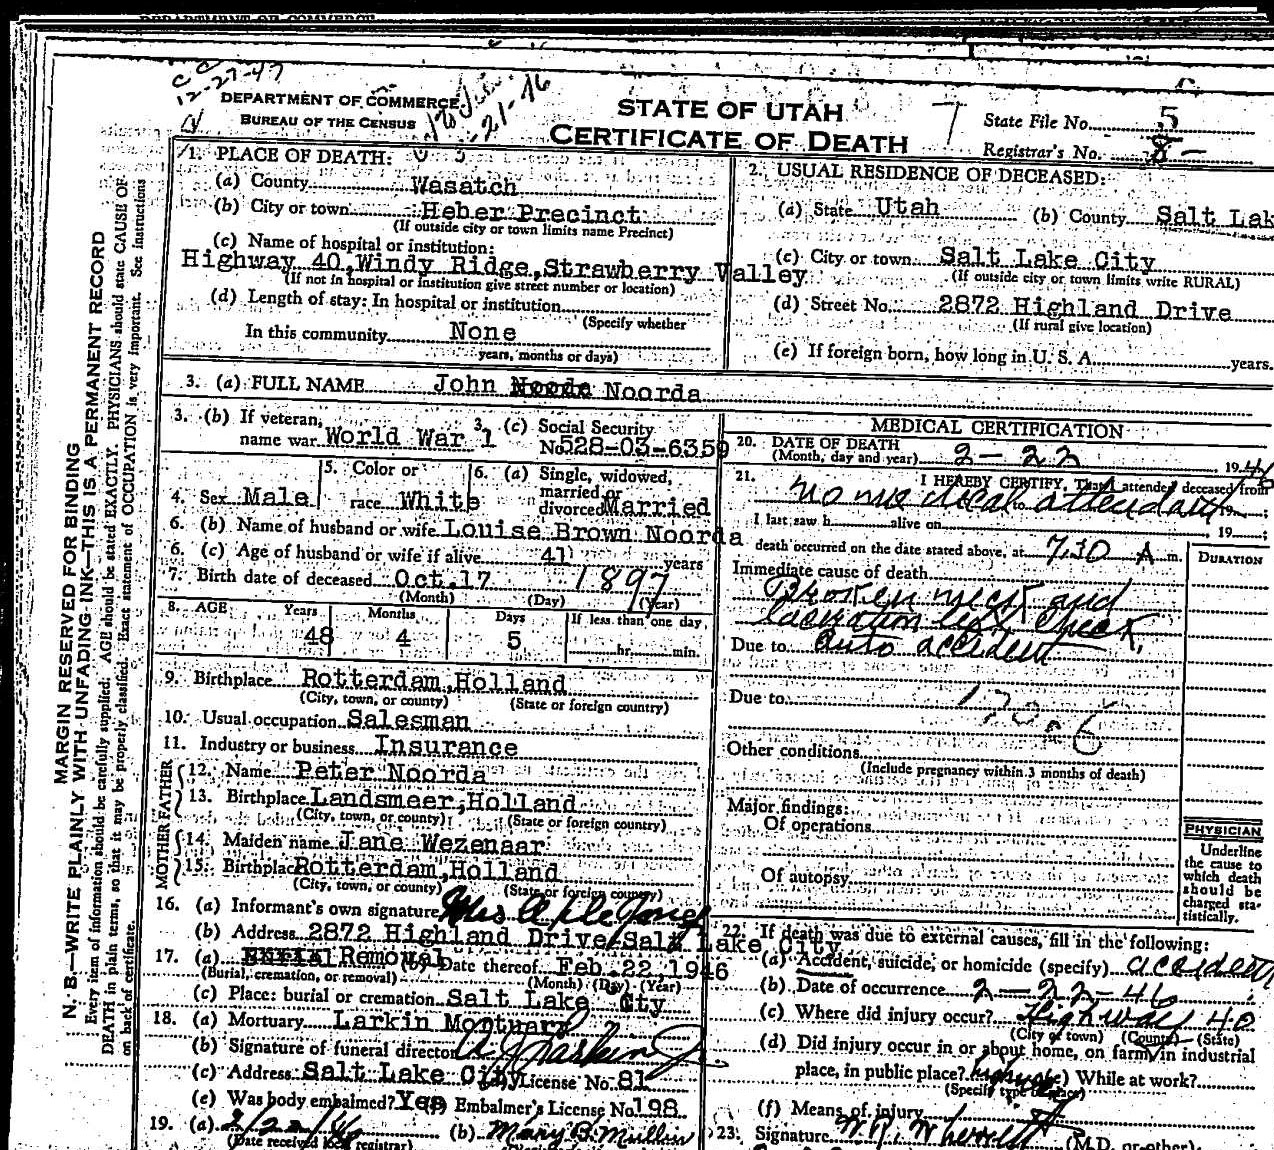 DEPARTMENT OF COMMERCE
C C
12-27-47
21-46
DEPARTMENT OF COMMERCE
BUREAU OF THE CENSUS
STATE OF UTAH
CERTIFICATE OF DEATH
State File No. 5
Registrar's No. 8-
MARGIN RESERVED FOR BINDING
N. B.—WRITE PLAINLY WITH UNFADING INK—THIS IS A PERMANENT RECORD
Every item of information should be carefully supplied. AGE should be stated EXACTLY. PHYSICIANS should state CAUSE OF
DEATH in plain terms, so that it may be properly classified. Exact statement of OCCUPATION is very important. See instructions
on back of certificate.
1. PLACE OF DEATH:
(a) County Wasatch
(b) City or town Heber Precinct
(If outside city or town limits name Precinct)
(c) Name of hospital or institution:
Highway 40, Windy Ridge, Strawberry Valley
(If not in hospital or institution give street number or location)
(d) Length of stay: In hospital or institution
(Specify whether
In this community None
years, months or days)
2. USUAL RESIDENCE OF DECEASED:
(a) State Utah (b) County Salt Lak
(c) City or town Salt Lake City
(If outside city or town limits write RURAL)
(d) Street No. 2872 Highland Drive
(If rural give location)
(e) If foreign born, how long in U. S. A. years.
3. (a) FULL NAME John Noorda
3. (b) If veteran, name war World War 1
3. (c) Social Security No. 528-03-6359
4. Sex Male
5. Color or race White
6. (a) Single, widowed, married or divorced Married
6. (b) Name of husband or wife Louise Brown Noorda
6. (c) Age of husband or wife if alive 41 years
7. Birth date of deceased Oct. 17 1897
(Month) (Day) (Year)
8. AGE Years Months Days If less than one day
48 4 5 hr. min.
9. Birthplace Rotterdam, Holland
(City, town, or county) (State or foreign country)
10. Usual occupation Salesman
11. Industry or business Insurance
FATHER
12. Name Peter Noorda
13. Birthplace Landsmeer, Holland
(City, town, or county) (State or foreign country)
MOTHER
14. Maiden name Jane Wezenaar
15. Birthplace Rotterdam, Holland
(City, town, or county) (State or foreign country)
16. (a) Informant's own signature Mrs
(b) Address 2872 Highland Drive, Salt Lake City
17. (a) Burial Removal (b) Date thereof Feb. 22, 1946
(Burial, cremation, or removal) (Month) (Day) (Year)
(c) Place: burial or cremation Salt Lake City
18. (a) Mortuary Larkin Mortuary
(b) Signature of funeral director
(c) Address Salt Lake City License No. 81
(e) Was body embalmed? Yes (f) Embalmer's License No. 198
19. (a) 2/22/46 (b) Mary B. Mullin
(Date received local registrar)
MEDICAL CERTIFICATION
20. DATE OF DEATH
(Month, day and year) 2-22, 1946
21. I HEREBY CERTIFY, That I attended deceased from
no medical attendant
to 19 ;
I last saw h alive on , 19 ;
death occurred on the date stated above, at 7:30 A m.
DURATION
Immediate cause of death
Broken neck and
laceration left cheek,
Due to auto accident
Due to 170-6
Other conditions
(Include pregnancy within 3 months of death)
Major findings:
Of operations
Of autopsy
PHYSICIAN
Underline
the cause to
which death
should be
charged sta-
tistically.
22. If death was due to external causes, fill in the following:
(a) Accident, suicide, or homicide (specify) accident
(b) Date of occurrence 2-22-46
(c) Where did injury occur? Highway 40
(City or town) (County) (State)
(d) Did injury occur in or about home, on farm, in industrial
place, in public place? highway (e) While at work?
(Specify type of place)
(f) Means of injury
23. Signature (M.D. or other)